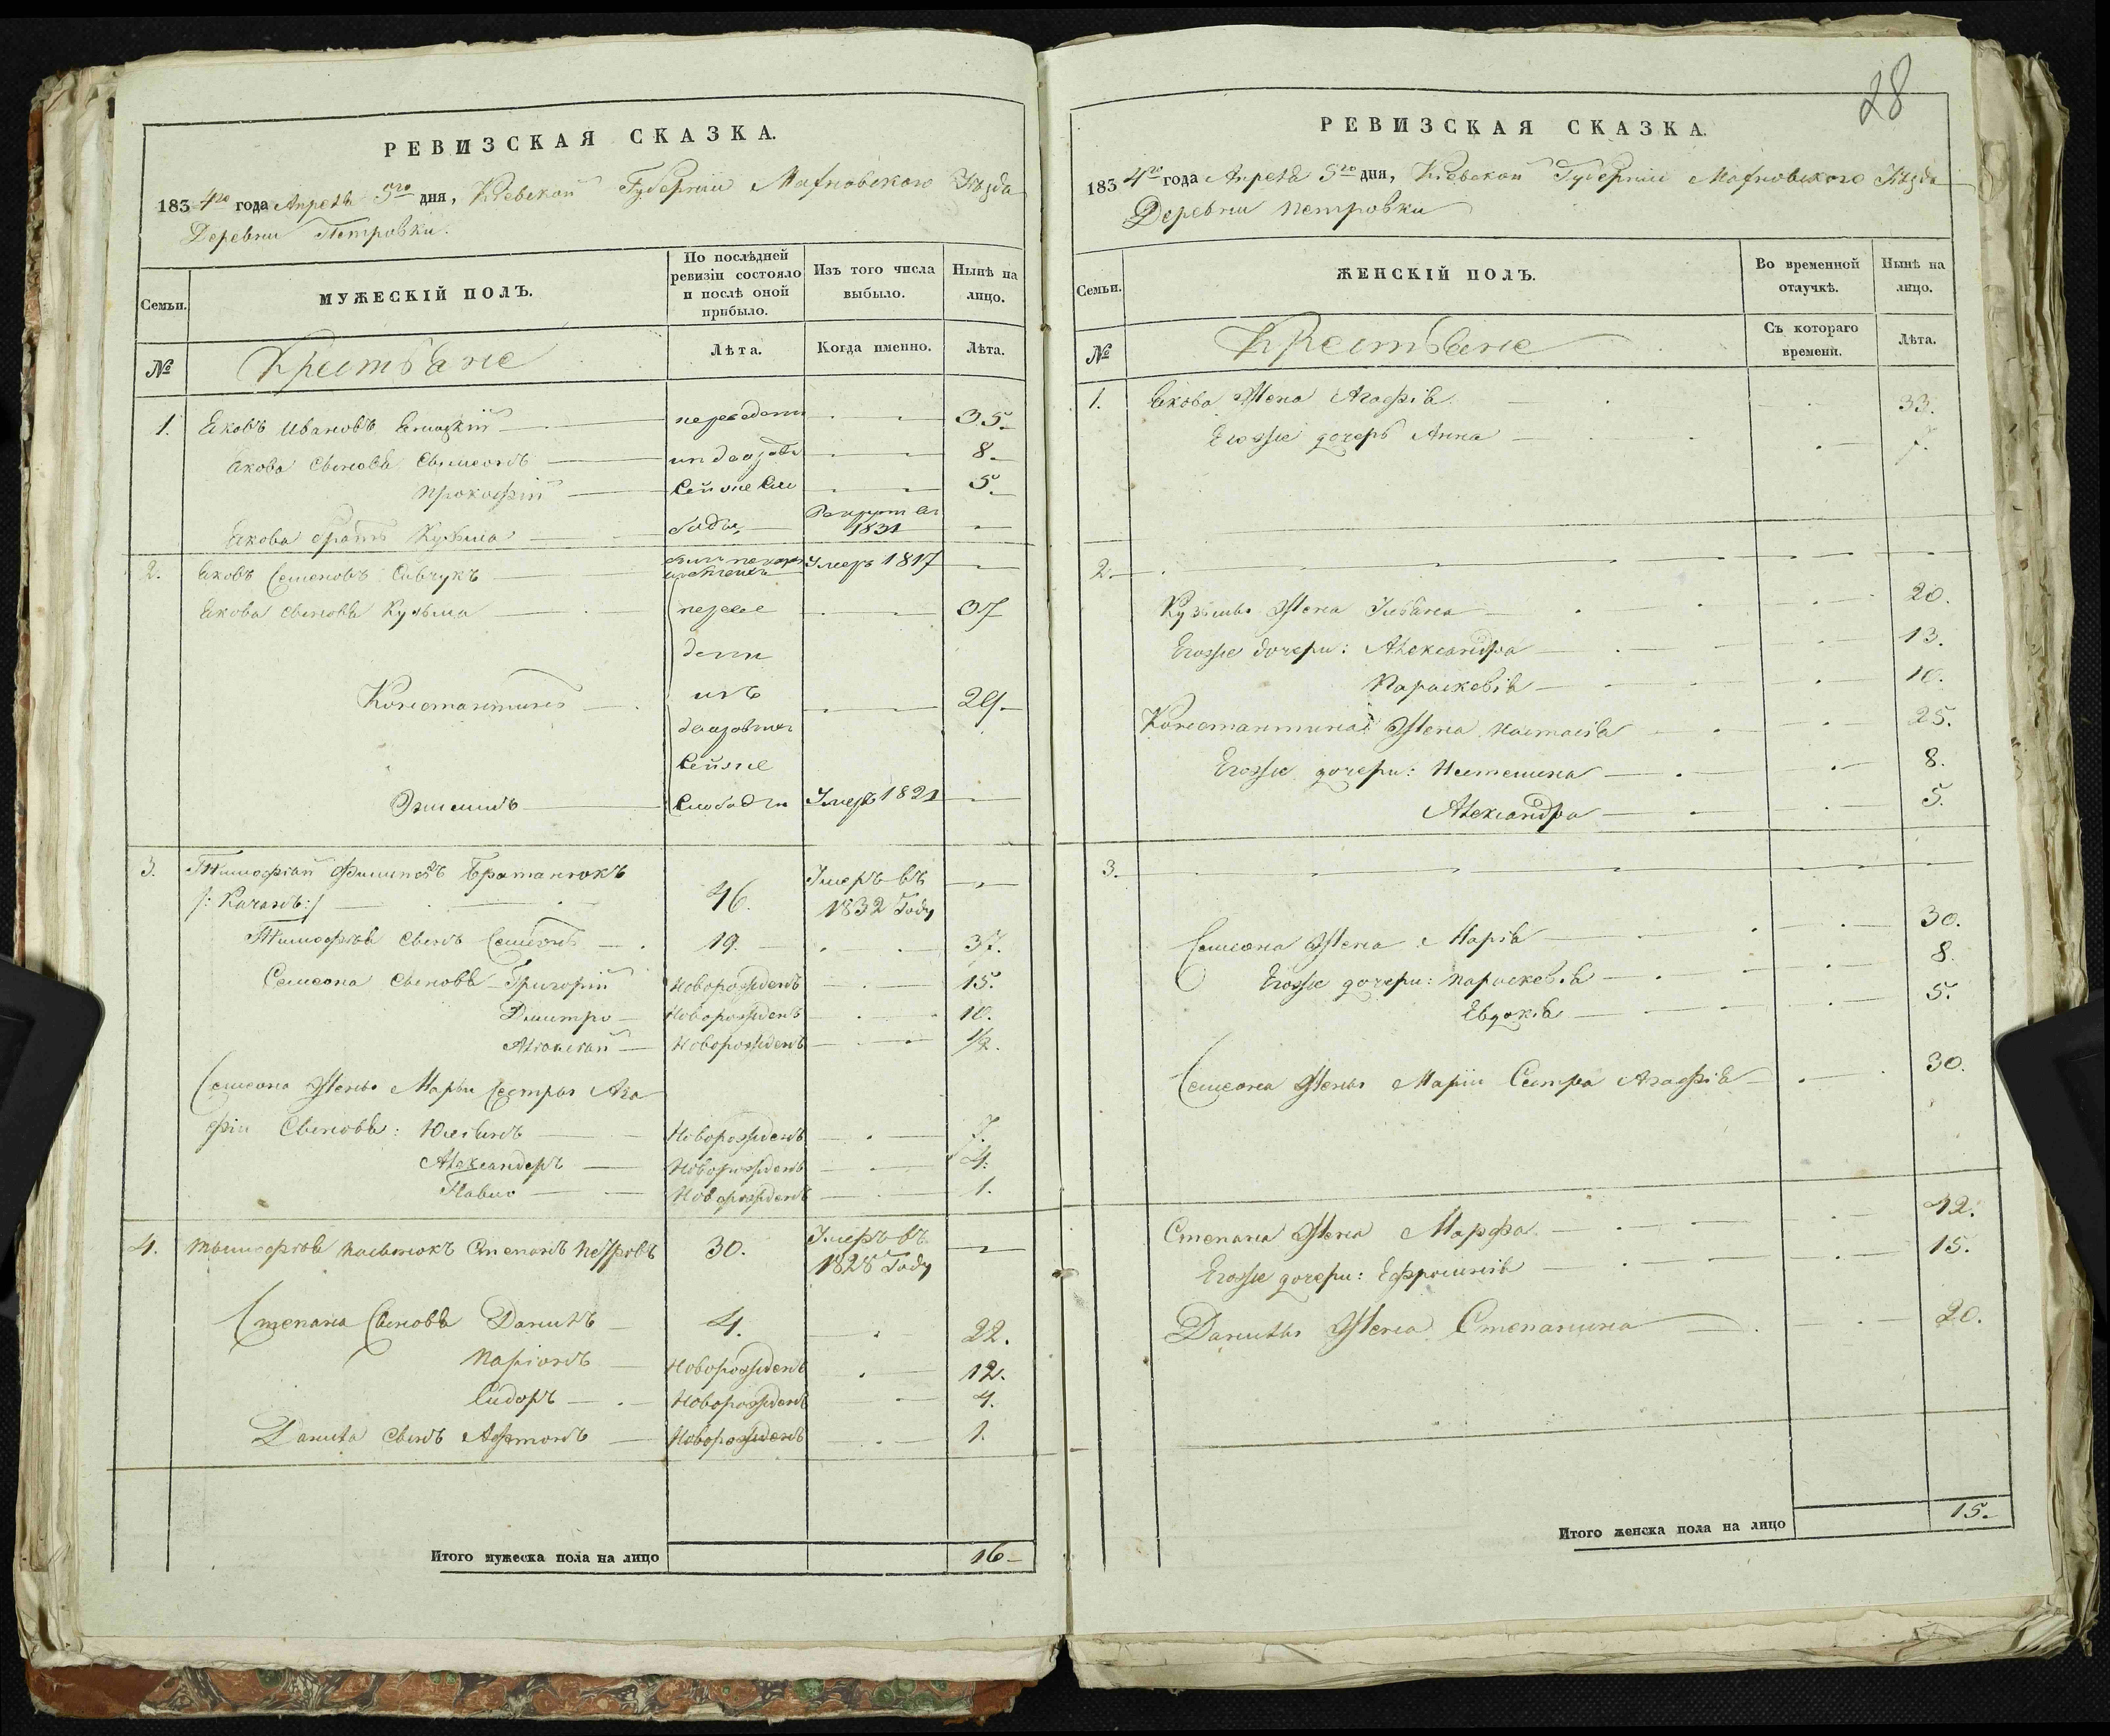 РЕВИЗСКАЯ СКАЗКА.
183 4го года Апреля 5го дня, Кіевской Губерніи Махновского Уѣзда
Деревни Петровки.
Семьи.
МУЖЕСКІЙ ПОЛЪ.
По послѣдней ревизіи состояло и послѣ оной прибыло.
Изъ того числа выбыло.
Нынѣ на лицо.
№
Крестьяне
Лѣта.
Когда именно.
Лѣта.
1. Яковъ Ивановъ переведены 35
Якова сыновья Сымеонъ 8
Прокофій сей же 5
Якова братъ Кузьма 1831
2. Яковъ Семеновъ Савчукъ Умеръ 1817
Якова сыновья Кузьма переве 37
дены
изъ
Константинъ 29
сей же
слободы Умеръ 1821
3. Тимофей Филиповъ Братанюкъ Умеръ въ
/: Качанъ :/ 46. 1832 Году
Тимофея сынъ Семіонъ 19. 37.
Семеона сыновья Григорій Новорожденъ 15.
Дмитро Новорожденъ 10.
Алексѣй Новорожденъ 1/2.
Семеона Жены Марьи Сестры Ага
фіи Сыновья: Юліянъ Новорожденъ 7.
Александеръ Новорожденъ 4.
Павло Новорожденъ 1.
4. Тимофея пасынокъ Степанъ Петровъ 30. Умеръ въ
1828 Году
Степана Сыновья Данилъ 4. 22.
Ларіонъ Новорожденъ 12.
Сидоръ Новорожденъ 4.
Данила Сынъ Афтонъ Новорожденъ 1.
Итого мужеска пола на лицо 16
28
РЕВИЗСКАЯ СКАЗКА.
183 4го года Апреля 5го дня, Кіевской Губерніи Махновского Уѣзда
Деревни Петровки
Семьи.
ЖЕНСКІЙ ПОЛЪ.
Во временной отлучкѣ.
Нынѣ на лицо.
№
Крестьяне
Съ котораго времени.
Лѣта.
1. Якова Жена Агафія 33.
Егоже дочерь Анна 7.
2.
Кузьмы Жена Ульяна 20.
Егоже дочери: Александра 13.
Параскевія 10.
Константина Жена Настасія 25.
Егоже дочери: 8.
Александра 5.
3.
Семеона Жена Марія 30.
Егоже дочери: Параскевія 8.
Евдокія 5.
Семеона Жены Маріи Сестра Агафія 30.
Степана Жена Марфа 42.
Егоже дочери: Ефросинія 15.
Данилы Жена Степанина 20.
Итого женска пола на лицо 15.